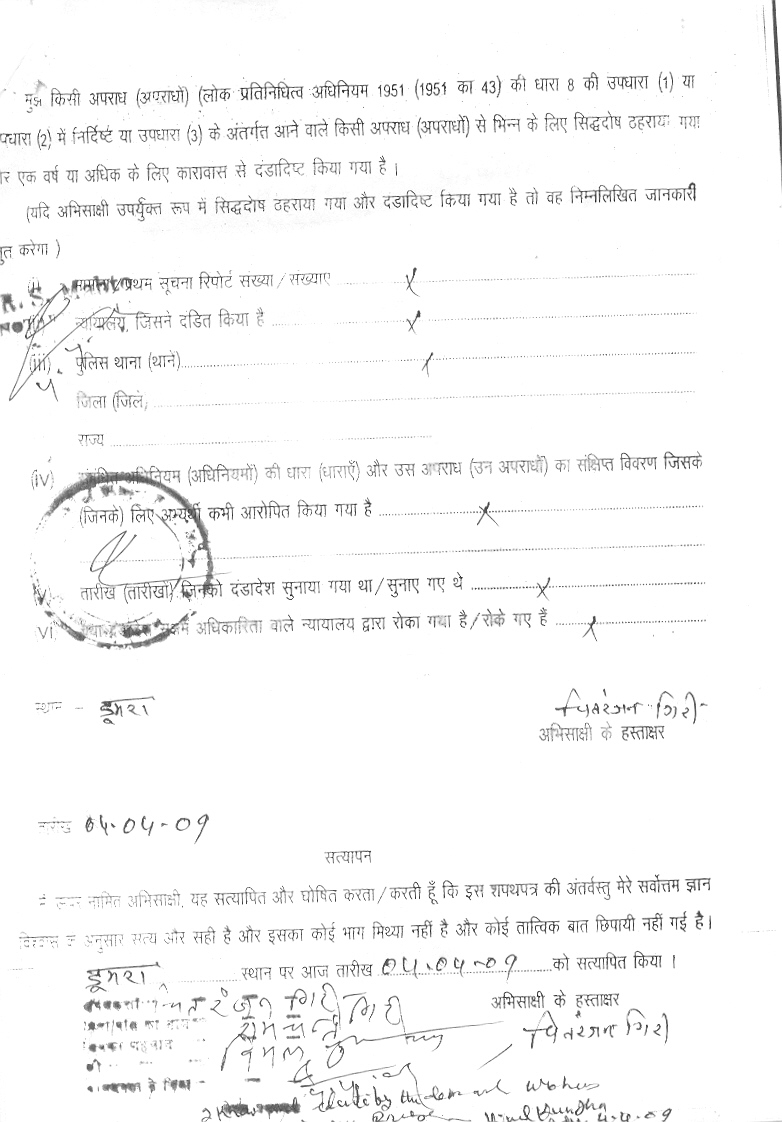 मुझे किसी अपराध (अपराधों) (लोक प्रतिनिधित्व अधिनियम 1951 (1951 का 43) की धारा 8 की उपधारा (1) या
पधारा (2) में निर्दिष्ट या उपधारा (3) के अंतर्गत आने वाले किसी अपराध (अपराधों) से भिन्न के लिए सिद्धदोष ठहराया गया
र एक वर्ष या अधिक के लिए कारावास से दंडादिष्ट किया गया है ।
(यदि अभिसाक्षी उपर्युक्त रूप में सिद्धदोष ठहराया गया और दंडादिष्ट किया गया है तो वह निम्नलिखित जानकारी
तुत करेगा )
प्रथम सूचना रिपोर्ट संख्या / संख्याए X
न्यायालय, जिसने दंडित किया है X
(iii) पुलिस थाना (थाने) X
जिला (जिले)
राज्य
(iv) अधिनियम (अधिनियमों) की धारा (धाराएँ) और उस अपराध (उन अपराधों) का संक्षिप्त विवरण जिसके
(जिनके) लिए अभ्यर्थी कभी आरोपित किया गया है X
V) तारीख (तारीखों) जिनको दंडादेश सुनाया गया था / सुनाए गए थे X
VI) अधिकारिता वाले न्यायालय द्वारा रोका गया है / रोके गए हैं X
स्थान - डूमरा
चितरंजन गिरी
अभिसाक्षी के हस्ताक्षर
तारीख 04-04-09
सत्यापन
नामित अभिसाक्षी, यह सत्यापित और घोषित करता / करती हूँ कि इस शपथपत्र की अंतर्वस्तु मेरे सर्वोत्तम ज्ञान
विश्वास के अनुसार सत्य और सही है और इसका कोई भाग मिथ्या नहीं है और कोई तात्विक बात छिपायी नहीं गई है।
डूमरा स्थान पर आज तारीख 04.04-09 को सत्यापित किया ।
रंजन गिरी
अभिसाक्षी के हस्ताक्षर
चितरंजन गिरी